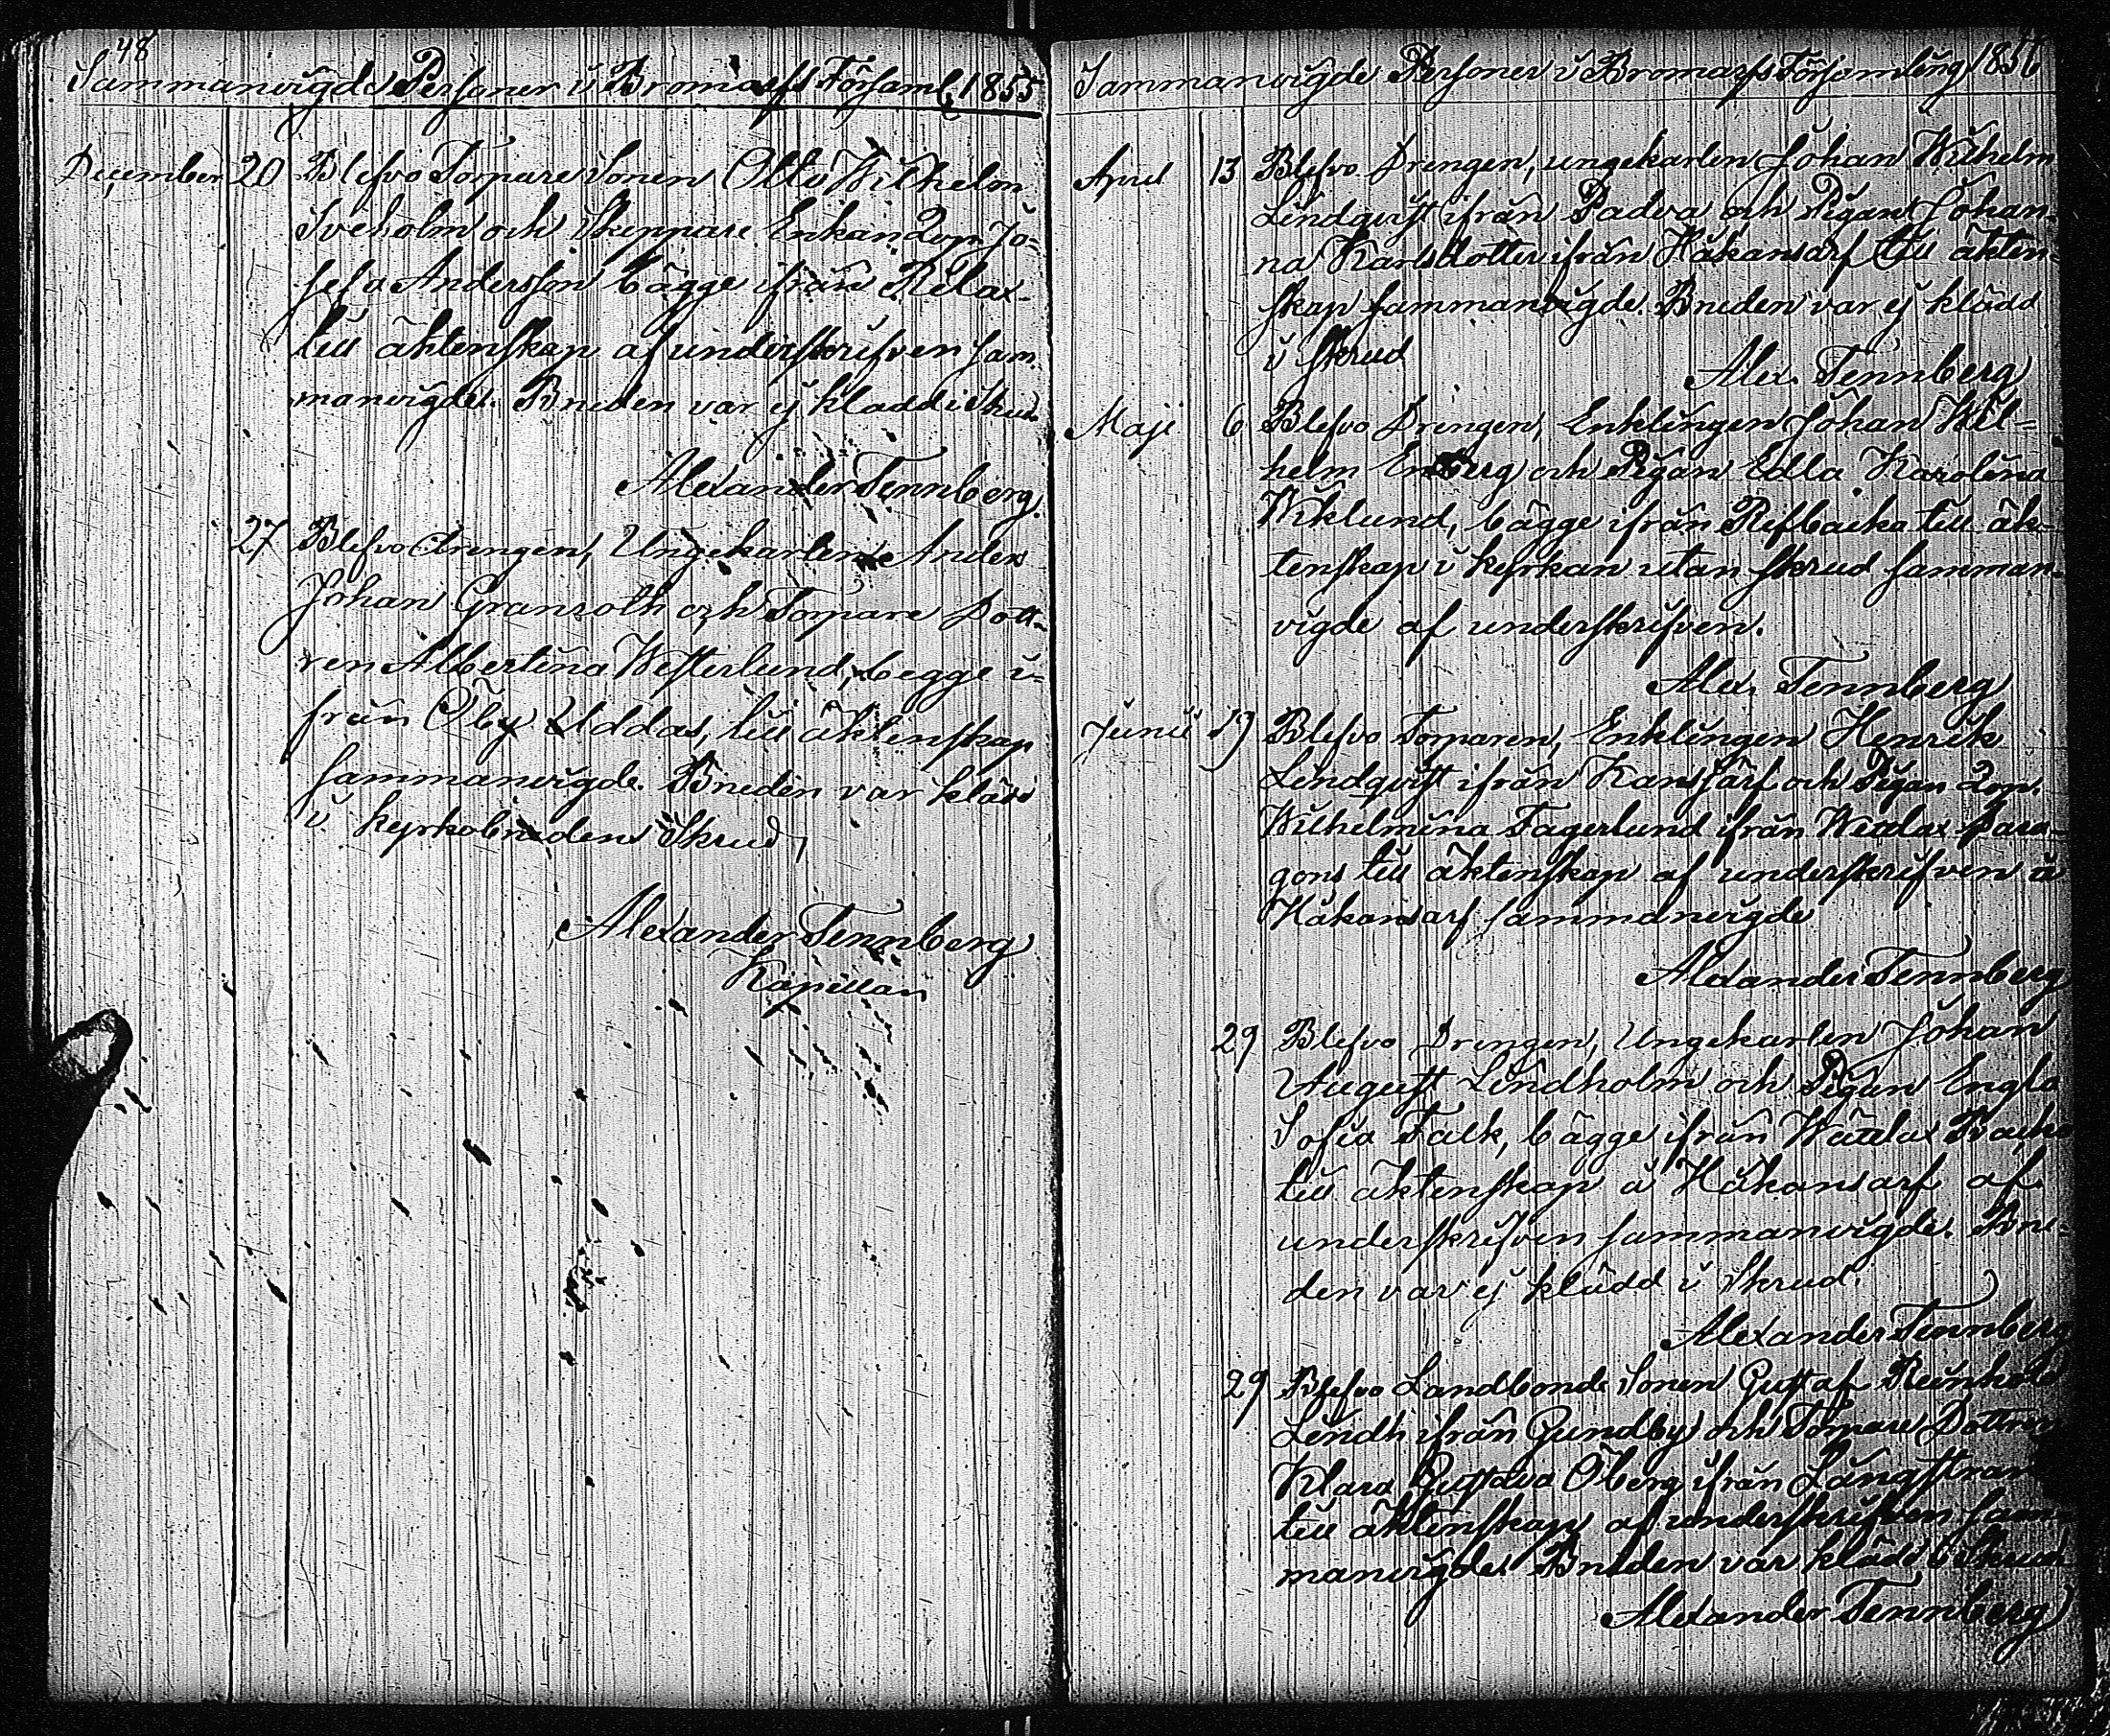 48
Sammanvigde Personer i Bromarfs Församl. 1855
December 20 Blefvo Torpare Sonen Otto Wilhelm
Sveholm och Skeppare Enkan Jo-
sefa Andersson bägge ifrån Rilax
till äktenskap af underskrifven sam-
manvigde. Bruden var ej klädd i Skrud
Alexander Tennberg.
27 Blefvo Drengen, Ungekarlen Anders
Johan Granroth och Torpare Dott-
ren Albertina Westerlund, begge i-
från Öby Uddas, till äktenskap
sammanvigde. Bruden var klädd
i kyrkobrudens Skrud,
Alexander Tennberg
Kapellan
Sammanvigde Personer i Bromarfs Församling 1856
April 13 Blefvo Drengen, ungekarlen Johan Wilhelm
Lindqvist ifrån Padva och Pigan Johan-
na Karlsdotter ifrån Håkansarf till äkten-
skap sammanvigde. Bruden var ej klädd
i skrud
Alex. Tennberg
Maji 6 Blefvo Drengen, Enklingen Johan Wil-
helm och Pigan Edla Karolina
Wiklund, bägge ifrån Refbacka till äk-
tenskap i kyrkan utan skrud samman-
vigde af underskrifven.
Alex. Tennberg
Junii 19 Blefvo Torparen, Enklingen Henrik
Lindqvist ifrån Kansjärf och Pigan
Wilhelmina Fagerlund ifrån Wättlax Para-
gons till äktenskap af underskrifven å
Håkansarf sammanvigde
Alexander Tennberg
29 Blefvo Drengen, Ungekarlen Johan
August Lindholm och Pigan Engla
Sofia Falk, bägge ifrån Wättlax Backa
till äktenskap å Håkansarf af
underskrifven sammanvigde. Bru-
den var ej klädd i Skrud.
Alexander Tennberg
29 Blefvo Landbonde Sonen Gustaf Reinhold
Lindh ifrån Gundby och Torpare Dottren
Klara Gustava Öberg ifrån Långstrand
till äktenskap af underskrifven sam-
manvigde. Bruden var klädd i Skrud
Alexander Tennberg